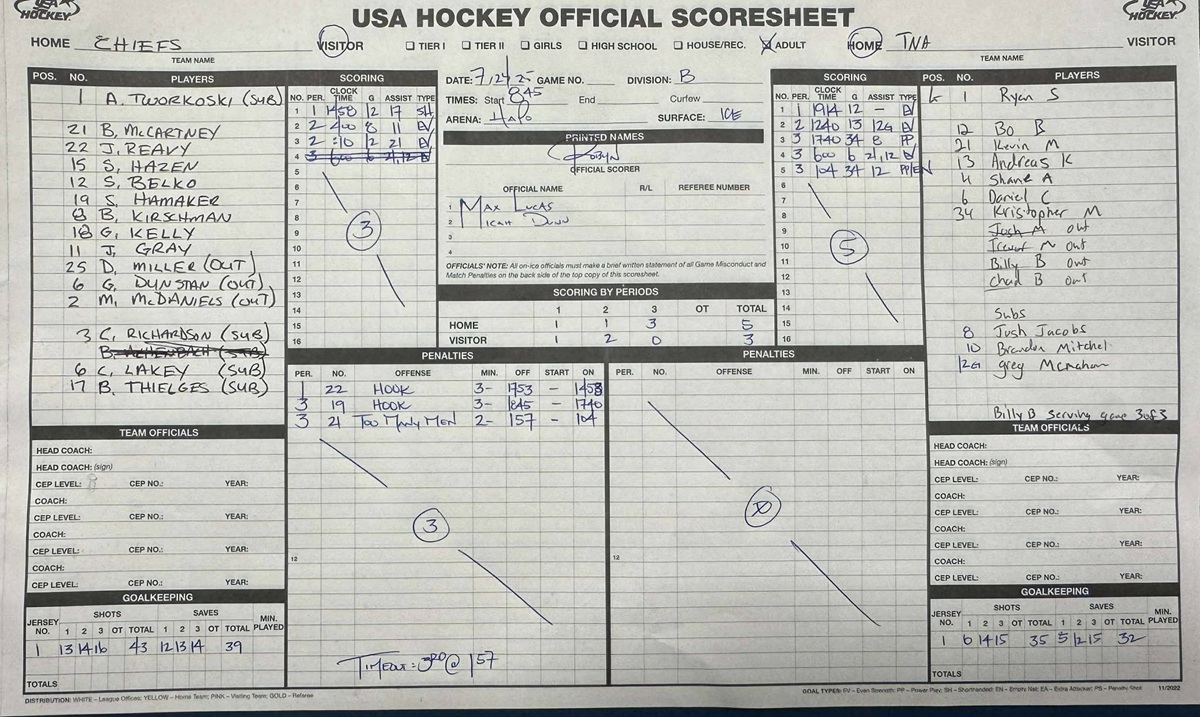 USA HOCKEY
USA HOCKEY OFFICIAL SCORESHEET
USA HOCKEY
HOME CHIEFS VISITOR ☐ TIER I ☐ TIER II ☐ GIRLS ☐ HIGH SCHOOL ☐ HOUSE/REC. ☒ ADULT HOME TNA VISITOR
TEAM NAME
TEAM NAME
POS. NO. PLAYERS
1 A. TWORKOSKI (SUB)
21 B. McCARTNEY
22 J. REAVY
15 S. HAZEN
12 S. BELKO
19 S. HAMAKER
8 B. KIRSCHMAN
18 G. KELLY
11 J. GRAY
25 D. MILLER (OUT)
6 G. DUNSTAN (OUT)
2 M. McDANIELS (OUT)
3 C. RICHARDSON (SUB)
B. ACHENBACH (SUB)
6 C. LAKEY (SUB)
17 B. THIELGES (SUB)
TEAM OFFICIALS
HEAD COACH:
HEAD COACH: (sign)
CEP LEVEL: CEP NO.: YEAR:
COACH:
CEP LEVEL: CEP NO.: YEAR:
COACH:
CEP LEVEL: CEP NO.: YEAR:
COACH:
CEP LEVEL: CEP NO.: YEAR:
GOALKEEPING
JERSEY NO. SHOTS SAVES MIN. PLAYED
1 2 3 OT TOTAL 1 2 3 OT TOTAL
1 13 14 16 43 12 13 14 39
TOTALS
SCORING
NO. PER. CLOCK TIME G ASSIST TYPE
1 1 1458 12 17 SH
2 2 400 8 11 EV
3 2 :10 12 21 EV
4 3 600 6 21,12 EV
5
6
7
8
9
10
11
12
13
14
15
16
3
DATE: 7/24/25 GAME NO. DIVISION: B
TIMES: Start 845 End Curfew
ARENA: Halo SURFACE: ICE
PRINTED NAMES
Robyn
OFFICIAL SCORER
OFFICIAL NAME R/L REFEREE NUMBER
1 Max Lucas
2 Micah Dunn
3
4
OFFICIALS' NOTE: All on-ice officials must make a brief written statement of all Game Misconduct and
Match Penalties on the back side of the top copy of this scoresheet.
SCORING BY PERIODS
1 2 3 OT TOTAL
HOME 1 1 3 5
VISITOR 1 2 0 3
SCORING
NO. PER. CLOCK TIME G ASSIST TYPE
1 1 1914 12 - EV
2 2 1240 13 12G EV
3 3 1740 34 8 PP
4 3 600 6 21,12 EV
5 3 104 34 12 PP/EN
6
7
8
9
10
11
12
13
14
15
16
5
PENALTIES
PER. NO. OFFENSE MIN. OFF START ON
1 22 HOOK 3- 1753 - 1453
3 19 HOOK 3- 1845 - 1740
3 21 TOO MANY MEN 2- 157 - 104
3
12
TIMEOUT: 3RD @ 157
PENALTIES
PER. NO. OFFENSE MIN. OFF START ON
12
POS. NO. PLAYERS
1 Ryan S
12 Bo B
21 Kevin M
13 Andreas K
4 Shane A
6 Daniel C
34 Kristopher M
Josh M out
Trevor M out
Billy B out
Chad B out
Subs
8 Josh Jacobs
10 Brandon Mitchel
12G Greg Mcmahan
Billy B serving game 3 of 3
TEAM OFFICIALS
HEAD COACH:
HEAD COACH: (sign)
CEP LEVEL: CEP NO.: YEAR:
COACH:
CEP LEVEL: CEP NO.: YEAR:
COACH:
CEP LEVEL: CEP NO.: YEAR:
COACH:
CEP LEVEL: CEP NO.: YEAR:
GOALKEEPING
JERSEY NO. SHOTS SAVES MIN. PLAYED
1 2 3 OT TOTAL 1 2 3 OT TOTAL
1 6 14 15 35 5 12 15 32
TOTALS
DISTRIBUTION: WHITE – League Offices; YELLOW – Home Team; PINK – Visiting Team; GOLD – Referee
GOAL TYPES: EV – Even Strength; PP – Power Play; SH – Shorthanded; EN – Empty Net; EA – Extra Attacker; PS – Penalty Shot 11/2022